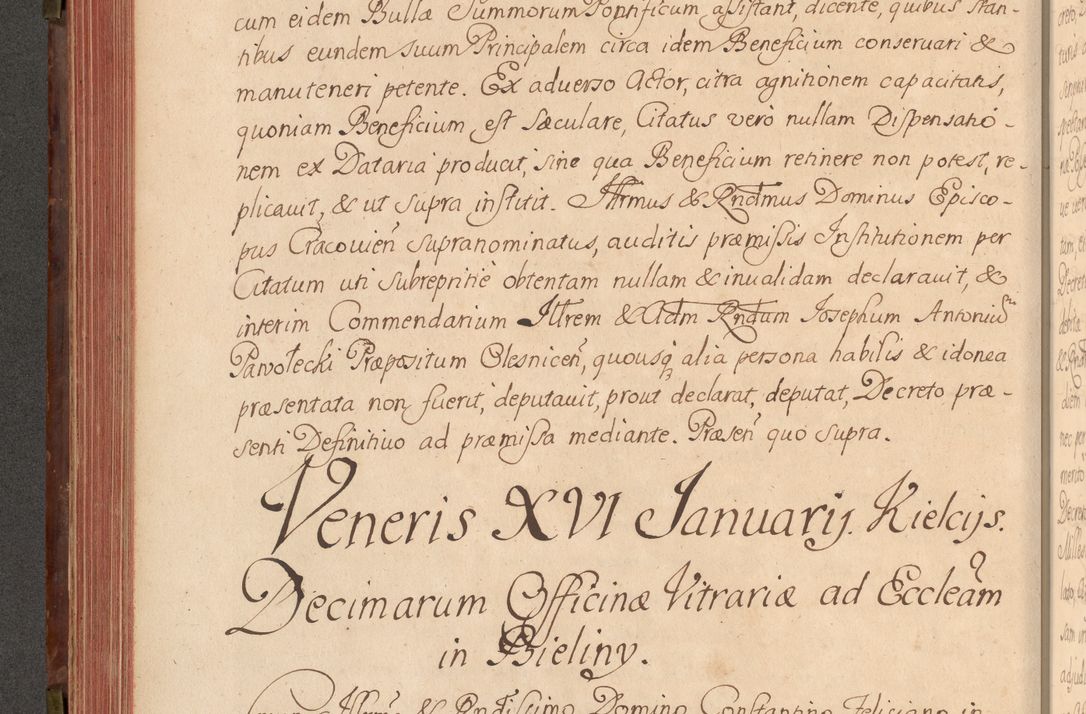 cum eidem Bullæ Summorum Pontificum assistant, dicente, quibus stan-
tibus eundem suum Principalem circa idem Beneficium conservari &
manuteneri petente. Ex adverso Actor, citra agnitionem capacitatis,
quoniam Beneficium est sæculare, Citatus verò nullam Dispensatió-
nem ex Dataria producit, sine qua Beneficium retinere non potest, re-
plicavit, & ut supra institit. Illrmus & Rndmus Dominus Episco-
pus Cracovień supranominatus, auditis præmissis Institutionem per
Citatum uti subreptitiè obtentam nullam & invalidam declaravit, &
interim Commendarium Illrem & Adm Rndum Josephum Antonium
Pawołecki Præpositum Olesniceń, quousq alia persona habilis & idonea
præsentata non fuerit, deputavit, prout declarat, deputat, Decreto præ-
senti Definitivo ad præmissa mediante. Præseń quo supra.
Veneris XVI Januarij. Kielcijs.
Decimarum Officinæ Vitrariæ ad Eccleam
in Bieliny.
& Rndissimo Domino Constantino Feliciano in